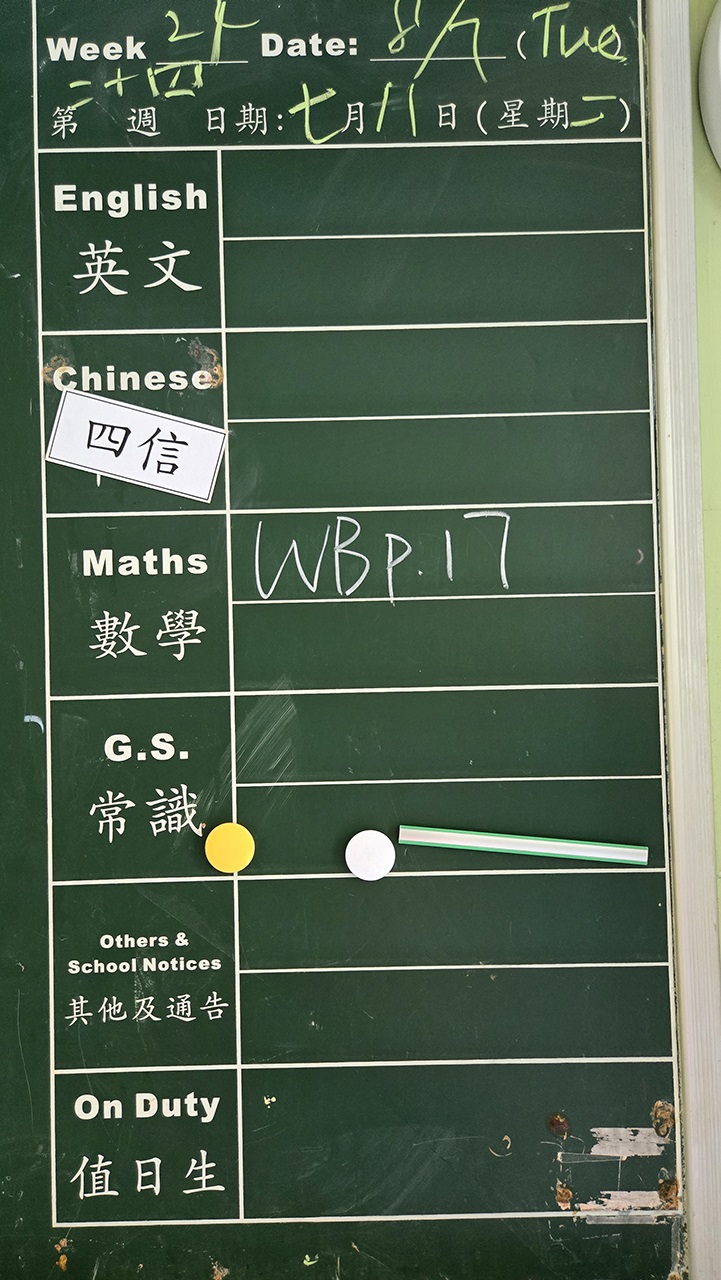 Week 24 Date: 8/7 (Tue)
第二十四週 日期:七月八日(星期二)
English
英文
Chinese
四信
Maths WB p.17
數學
G.S.
常識
Others &
School Notices
其他及通告
On Duty
值日生